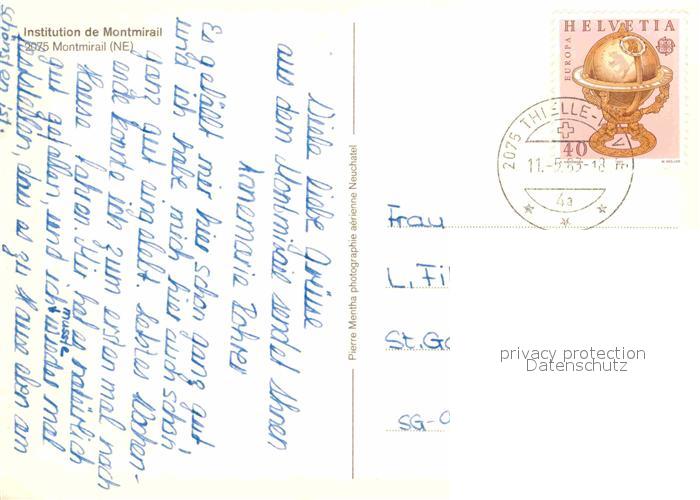 Institution de Montmirail
2075 Montmirail (NE)
Viele liebe Grüsse
aus dem Montmirail sendet Ihnen
Annemarie Rohrer
Es gefällt mir hier schon ganz gut
und ich habe mich hier auch schon
ganz gut eingelebt. Letztes Wochen-
ende konnte ich zum ersten mal nach
Hause fahren. Mir hat es natürlich
gut gefallen, und ich musste wieder mal
feststellen, dass es zu Hause eben am
schönsten ist.
Pierre Mentha photographie aérienne Neuchatel
HELVETIA
EUROPA
40
2075 THIELLE-
4a
Frau
L. Fil
St.Ga
SG-
privacy protection
Datenschutz